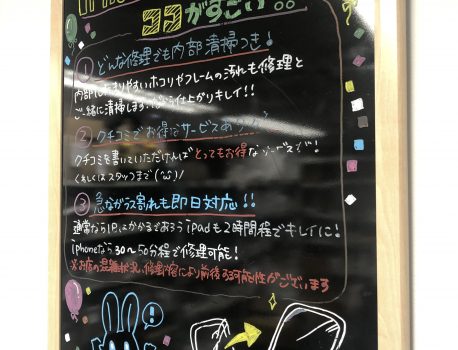 ココがすごい!!
① どんな修理でも内部清掃つき!
内部にたまりやすいホコリやフレームの汚れも修理と
ご一緒に清掃します 仕上がりキレイ!!
② クチコミでお得でサービスあり
クチコミを書いていただければとってもお得な
くわしくはスタッフまで
③ 急なガラス割れも即日対応!!
通常なら1日 かかるであろうiPadも2時間程でキレイに!
iphoneなら30〜50分程で修理可能!
※お店の混雑状況、修理内容により前後する可能性がございます